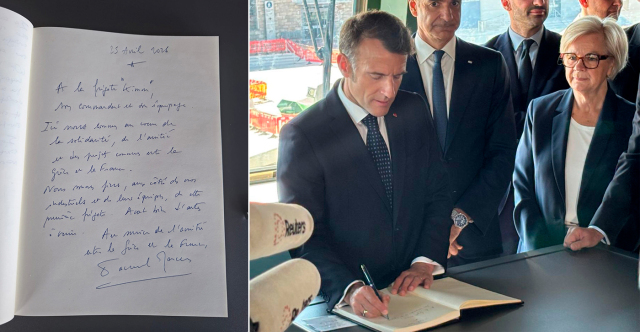 25 Avril 2026
A la frégate "Kimon"
son commandant et son équipage
Ici nous sommes au coeur de
la solidarité, de l'amitié
et des projets communs entre la
Grèce et la France.
Nous mes fiers, aux côtés de nos
industriels et de leurs équipes, de cette
première frégate. Avant bien d'autres
à venir. Au service de l'amitié
entre la Grèce et la France,
Reuters